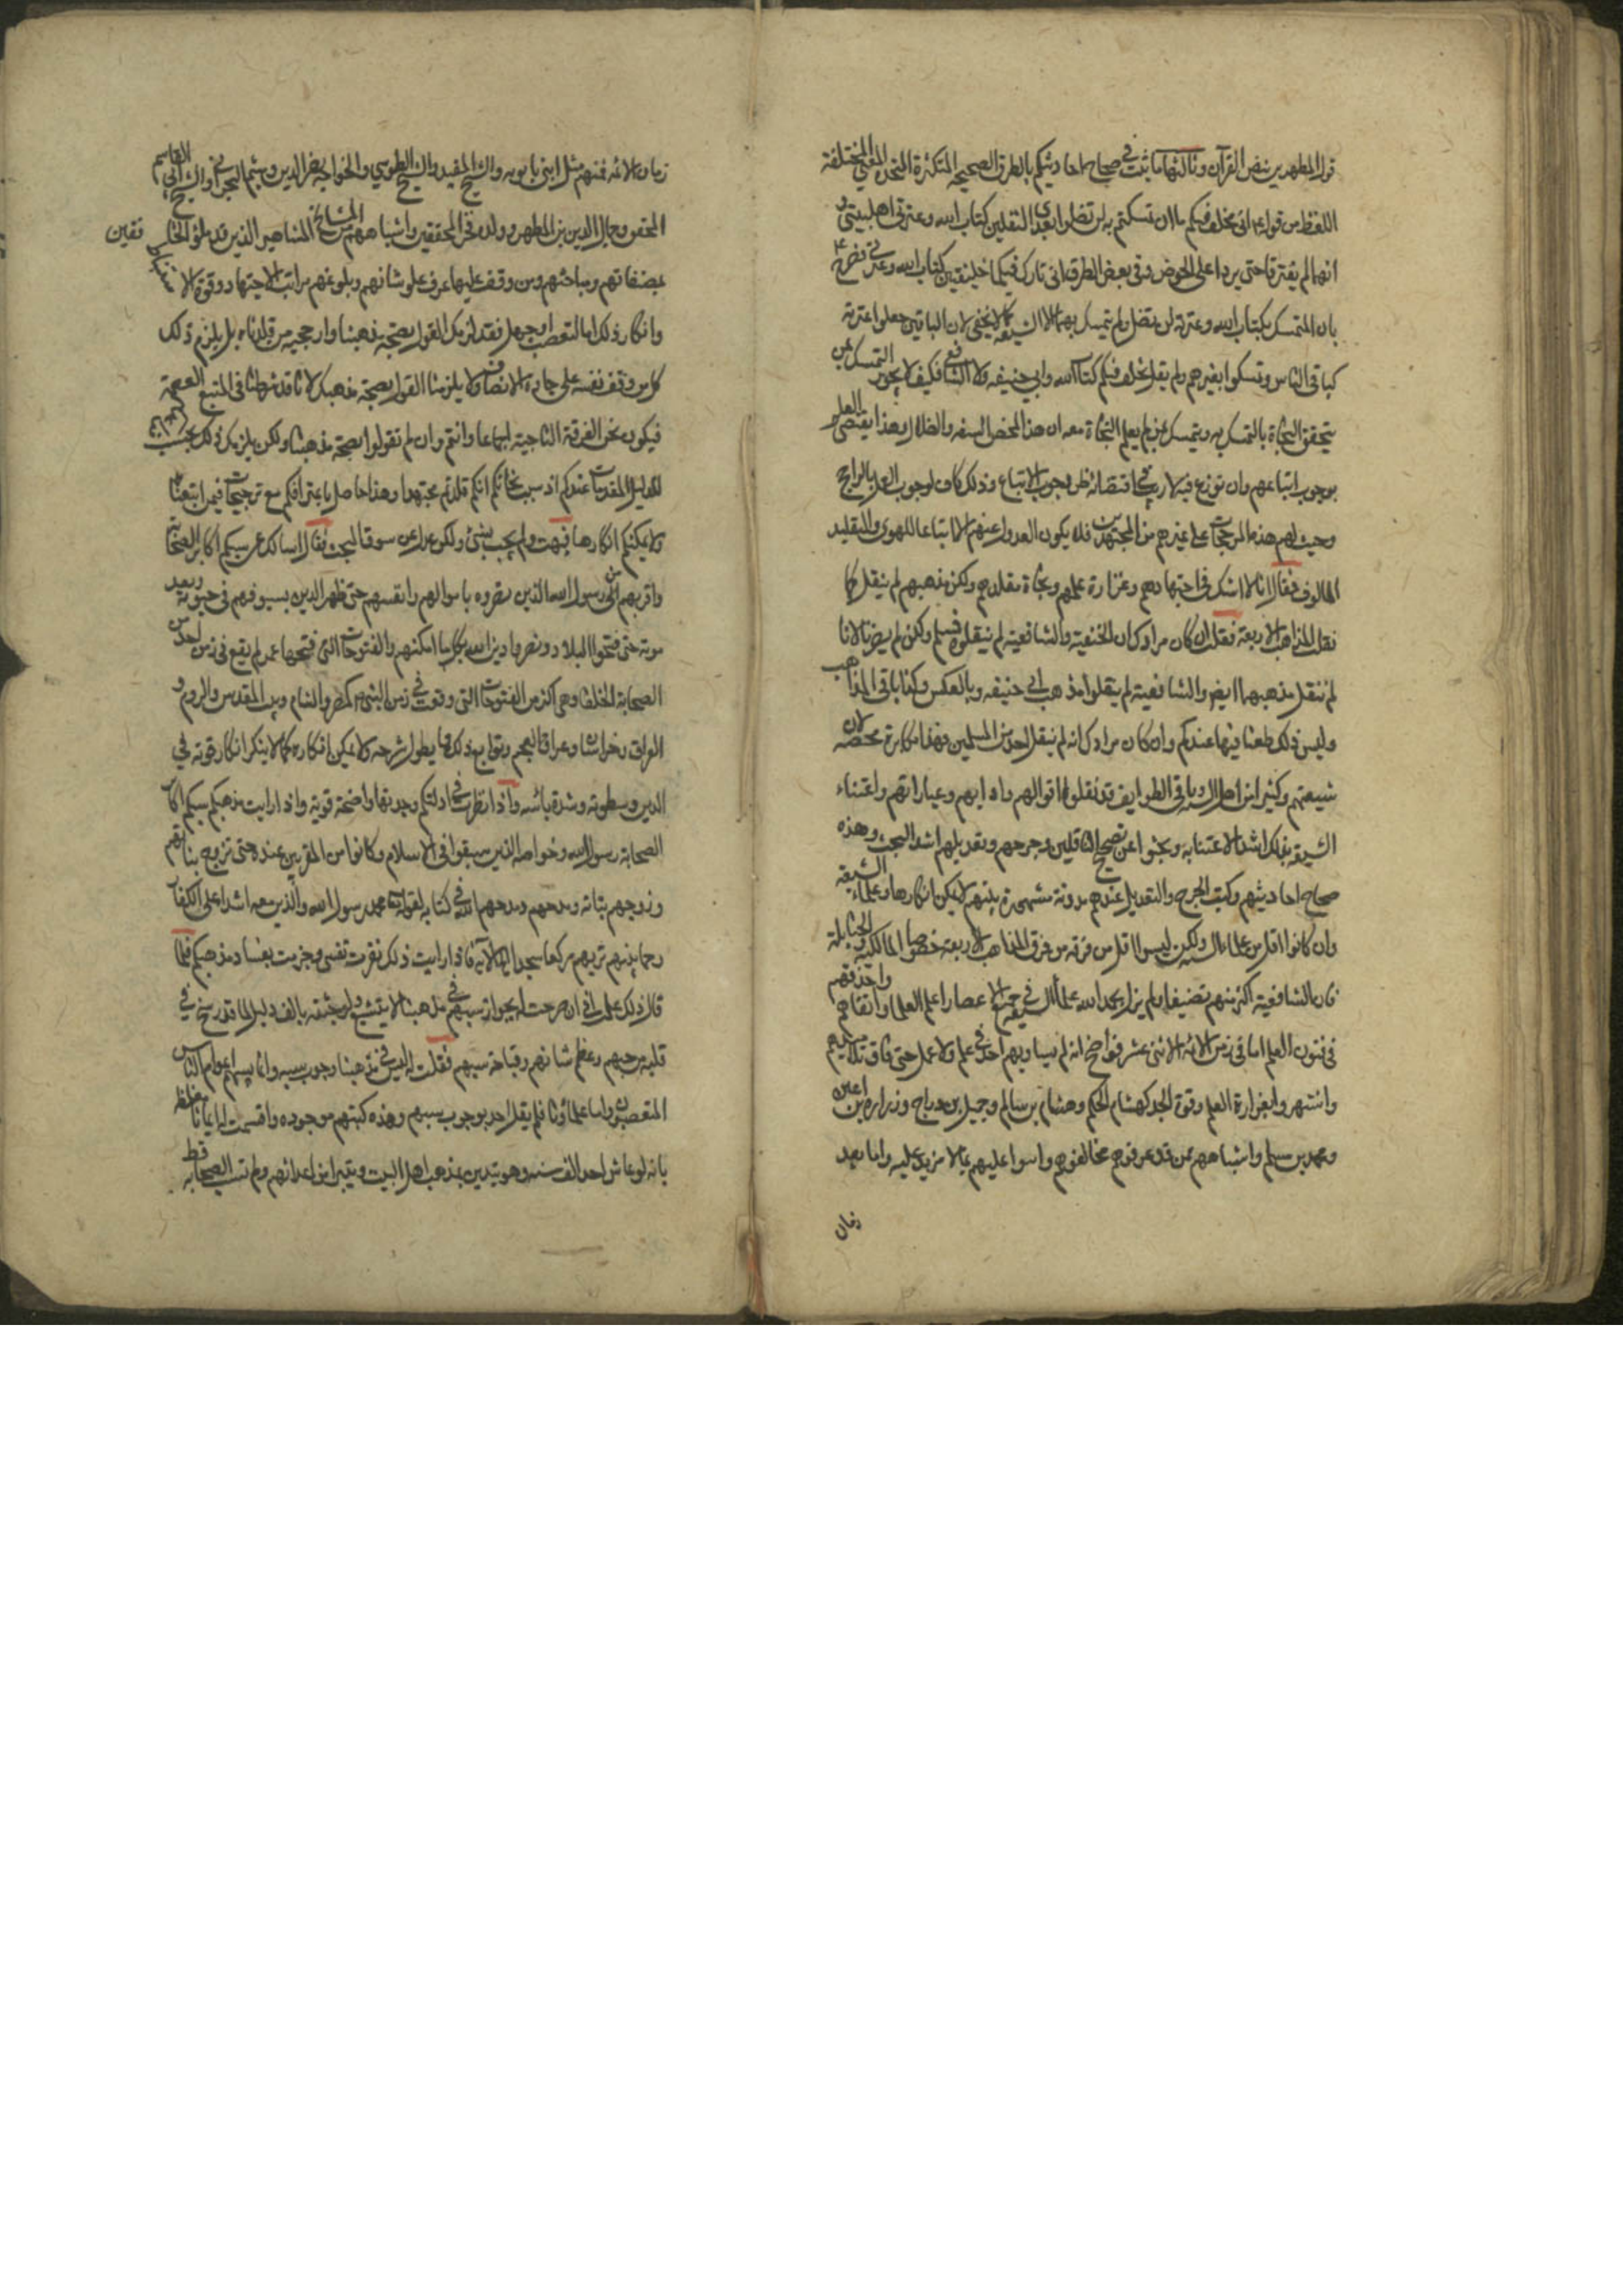 قول المطهرين بنص القرآن وثالثها ما ثبت في صحاح احاديثكم بالطرق الصحيحة المتكثرة المتحدة المعنى المختلفة
اللفظ من قوله اني مخلف فيكم ما ان تمسكتم به لن تضلوا بعدي الثقلين كتاب الله وعترتي اهل بيتي و
انهما لم يفترقا حتى يردا على الحوض وفي بعض الطرق اني تارك فيكم خليفتين كتاب الله وعترتي فصرح
بان المتمسك بكتاب الله وعترته لن يضل ولم يتمسك بهما الا الشيعة كما لا يخفى لان الباقين جعلوا عترته
كباقي الناس وتمسكوا بغيرهم ولم يقل مخلف فيكم كتاب الله وابي حنيفه ولا الشافعي فكيف لا يجوز التمسك بمن
يتحقق النجاة بالتمسك به ويتمسك بمن لم يعلم النجاة معه ان هذا لمحض السفه والضلال وهذا يقتضي العلم
بوجوب اتباعهم وان نوزع فيه لا ريب في اقتضائه ظن وجوب الاتباع وذلك كاف لوجوب العمل بالراجح
وحيث لهم هذه المرجحات على غيرهم من المجتهدين فلا يكون العدول عنهم الا اتباعا للهوى والتقليد
المالوف فقال انا لا اشك في اجتهادهم وغزارة علمهم ونجاة مقلدهم ولكن مذهبهم لم ينقل كما
نقل المذاهب الاربعة فقلت ان كان مرادك ان الحنفية والشافعية لم ينقلوه فمسلم ولكن لم يضرنا لانا
لم ننقل مذهبهما ايضا والشافعية لم ينقلوا مذهب ابي حنيفه وبالعكس وكذا باقي المذاهب
وليس ذلك طعنا فيها عندكم وان كان مرادك انه لم ينقل احد من المسلمين فهذا مكابرة محضة لان
شيعتهم وكثيرا من اهل السنة وباقي الطوايف قد نقلوا اقوالهم وادابهم وعباداتهم واعتناء
الشيعة بذلك اشد الاعتناء به وبحثوا عن تصحيح الناقلين وجرحهم وتعديلهم اشد البحث وهذه
صحاح احاديثهم وكتب الجرح والتعديل عندهم مدونة مشهورة بينهم لا يمكن انكارها وعلماء الشيعة
وان كانوا اقل من علماء السنة ولكن ليسوا اقل من فرقة من فرق المذاهب الاربعة خصوصا المالكية والحنابلة
فان الشافعية اكثر منهم تصنيفا ولم يزل بحمد الله علماء الشيعة في جميع الاعصار اعلم العلماء واتقاهم واحذقهم
في فنون العلم اما في زمن الائمة الاثني عشر فواضح انه لم يساويهم احد في علم ولا عمل حتى فاق تلاميذهم
واشتهروا بغزارة العلم وقوة الجدل كهشام بن الحكم وهشام بن سالم وجميل بن دراج وزرارة بن اعين
ومحمد بن مسلم واشباههم ممن قد عرفوهم مخالفوهم واثنوا عليهم بما لا مزيد عليه واما بعد
زمان
زمان الائمة فمنهم مثل ابني بابويه والشيخ المفيد والشيخ الطوسي والخواجه نصير الدين وميثم البحراني والشيخ ابي القاسم
المحقق وجمال الدين بن المطهر وولده فخر المحققين واشباههم من المشايخ المشاهير الذين قد ملؤا الخافقين
بمصنفاتهم ومباحثهم ومن وقف عليها عرف علو شانهم وبلوغهم مراتب الاجتهاد وقوة الاستنباط
وانكار ذلك اما لتعصب او جهل فقد لزمك القول بصحة مذهبنا وارجحية من قلدناه بل يلزم ذلك
كل من وقف نفسه على جادة الانصاف ولا يلزمنا القول بصحة مذهبك لانا قد شرطنا في المتبع العصمة
فيكون نحن الفرقة الناجية اجماعا وانتم وان لم تقولوا بصحة مذهبنا ولكن يلزمكم ذلك بحسب
الدليل المقدمات عندكم اذ سبب نجاتكم انكم قلدتم مجتهدا وهذا حاصل لنا باعترافكم مع ترجيحات فيمن اتبعناه
ولا يمكنكم انكارها فبهت ولم يجب بشئ ولكن عدل عن سوق البحث فقال اسالك عن سبكم اكابر الصحابة
واقربهم من رسول الله الذين نصروه باموالهم وانفسهم حتى ظهر الدين بسيوفهم في حيوته وبعد
موته حتى فتحوا البلاد ونصروا دين الله بكل ما امكنهم والفتوحات التي فتحها عمر لم يقع في زمن احد من
الصحابة الخلفاء وهي اكثر من الفتوحات التي وقعت في زمن النبي كمصر والشام وبيت المقدس والروم و
العراق وخراسان وعراق العجم وتوابع ذلك مما يطول شرحه ولا يمكن انكاره كما لا ينكر انكار قوته في
الدين وسطوته وشدة باسه واذا نظرت في ادلتكم وجدتها واضحة قوية واذا رايت مذهبكم سبكم اكابر
الصحابة رسول الله وخواصه الذين سبقوا في الاسلام وكانوا من المقربين عنده حتى تزوج بناتهم
وزوجهم بناته ومدحهم ومدحهم الله في كتابه بقوله تعالى محمد رسول الله والذين معه اشداء على الكفار
رحماء بينهم تريهم ركعا سجدا الاية فاذا رايت ذلك نفرت نفسي وجزمت بفساد مذهبكم فلما
قال ذلك علمت اني ان صرحت له بجواز سبهم في مذهبنا لا يتشيع ولو جئته بالف دليل لما قد رسخ في
قلبه من حبهم وعظم شانهم وقباحة سبهم فقلت له ليس في مذهبنا وجوب سبهم وانما يسبهم عوام الناس
المتعصبون واما علماؤنا فلم يقل احد بوجوب سبهم وهذه كتبهم موجوده واقسمت له ايمانا مغلظة
بانه لو عاش احد الف سنة وهو يتدين بمذهب اهل البيت ويتبرا من اعدائهم ولم تسب الصحابه قط